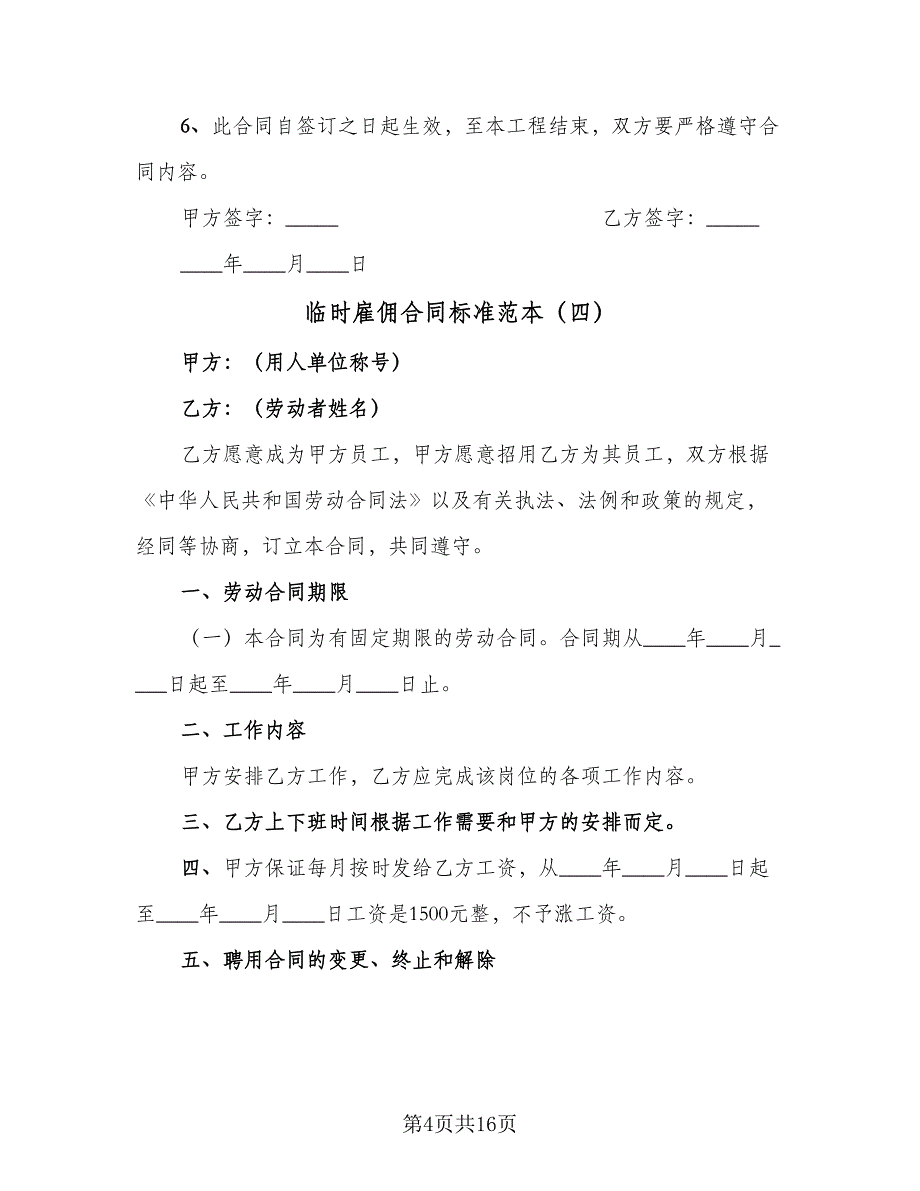 6、此合同自签订之日起生效，至本工程结束，双方要严格遵守合
同内容。
甲方签字：_____ 乙方签字：_____
____年____月____日
临时雇佣合同标准范本（四）
甲方：（用人单位称号）
乙方：（劳动者姓名）
乙方愿意成为甲方员工，甲方愿意招用乙方为其员工，双方根据
《中华人民共和国劳动合同法》以及有关执法、法例和政策的规定，
经同等协商，订立本合同，共同遵守。
一、劳动合同期限
（一）本合同为有固定期限的劳动合同。合同期从____年____月_
___日起至____年____月____日止。
二、工作内容
甲方安排乙方工作，乙方应完成该岗位的各项工作内容。
三、乙方上下班时间根据工作需要和甲方的安排而定。
四、甲方保证每月按时发给乙方工资，从____年____月____日起
至____年____月____日工资是1500元整，不予涨工资。
五、聘用合同的变更、终止和解除
第4页共16页